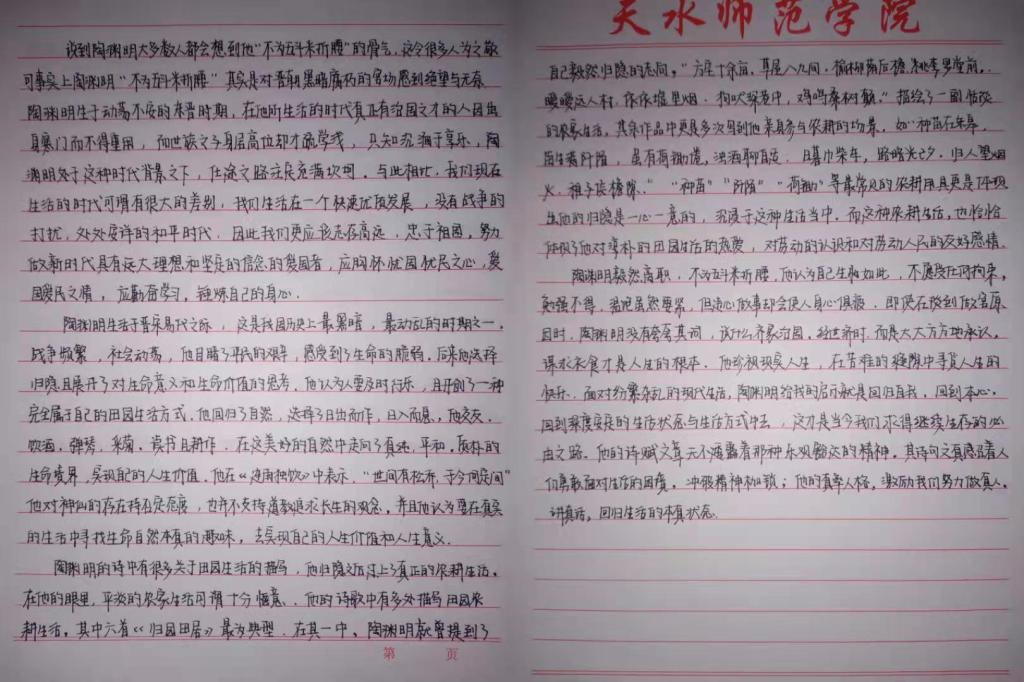 说到陶渊明大多数人都会想到他"不为五斗米折腰"的骨气,这令很多人为之敬
可事实上陶渊明"不为五斗米折腰"其实是对晋朝黑暗腐朽的官场感到绝望与无奈
陶渊明生于动荡不安的东晋时期,在他所生活的时代真正有治国之才的人因出
身寒门而不得重用,而世族之子身居高位却才疏学浅,只知沉湎于享乐,陶
渊明处于这种时代背景之下,仕途之路注定充满坎坷。与此相比,我们现在
生活的时代可谓有很大的差别,我们生活在一个极速优质发展,没有战争的
打扰,处处安详的和平时代。因此我们更应该志存高远,忠于祖国,努力
做新时代具有远大理想和坚定的信念的爱国者,应胸怀忧国忧民之心,爱
国爱民之情,应勤奋学习,锤炼自己的身心.
陶渊明生活于晋宋易代之际,这是我国历史上最黑暗,最动乱的时期之一,
战争频繁,社会动荡,他目睹了平民的艰辛,感受到了生命的脆弱.后来他选择
归隐且展开了对生命意义和生命价值的思考.他认为人要及时行乐,且开创了一种
完全属于自己的田园生活方式.他回归了自然,选择了日出而作,日入而息,他交友.
饮酒.弹琴,采菊.读书且耕作.在这美好的自然中走向了真纯,平和,质朴的
生命境界,实现自己的人生价值.他在《连雨独饮》中表示,"世间有松乔,于今何定间"
他对神仙的存在持否定态度,也并不支持道教追求长生的观念,并且他认为要在真实
的生活中寻找生命自然本真的趣味,去实现自己的人生价值和人生意义.
陶渊明的诗中有很多关于田园生活的描写,他归隐之后过上了真正的农耕生活.
在他的眼里,平淡的农家生活可谓十分惬意.他的诗歌中有多处描写田园农
耕生活,其中六首《归园田居》最为典型.在其一中,陶渊明就曾提到了
第 页
天水师范学院
自己毅然归隐的志向,"方宅十余亩,草屋八九间.榆柳荫后檐,桃李罗堂前.
暧暧远人村,依依墟里烟.狗吠深巷中,鸡鸣桑树颠."描绘了一副恬淡
的农家生活,其余作品中更是多次写到他亲身参与农耕的场景,如"种苗在东皋,
苗生满阡陌,虽有荷锄倦,浊酒聊自适.日暮巾柴车,路暗光已夕.归人望烟
火,稚子候檐隙.""种苗""阡陌""荷锄"等最常见的农耕用具更是体现
出他的归隐是一心一意的,沉浸于这种生活当中.而这种农耕生活,也恰恰
体现了他对淳朴的田园生活的热爱,对劳动的认识和对劳动人民的友好感情.
陶渊明毅然离职,不为五斗米折腰.他认为自己生性如此,不愿受任何拘束,
勉强不得,温饱虽然要紧,但违心做事却会使人身心俱疲.即使在谈到做官原
因时,陶渊明没有夸夸其词,说什么齐家治国,经世济时.而是大大方方地承认,
谋求衣食才是人生的根本.他珍视现实人生,在苦难的缝隙中寻觅人生的
快乐.面对纷繁杂乱的现代生活,陶渊明给我的启示就是回归自我,回到本心.
回到深度安定的生活状态与生活方式中去,这才是当今我们求得继续生存的必
由之路.他的诗赋文章无不透露着那种乐观豁达的精神.其诗句之真感染着人
们勇敢面对生活的困境,冲破精神枷锁;他的真率人格,激励我们努力做真人,
讲真话,回归生活的本真状态.